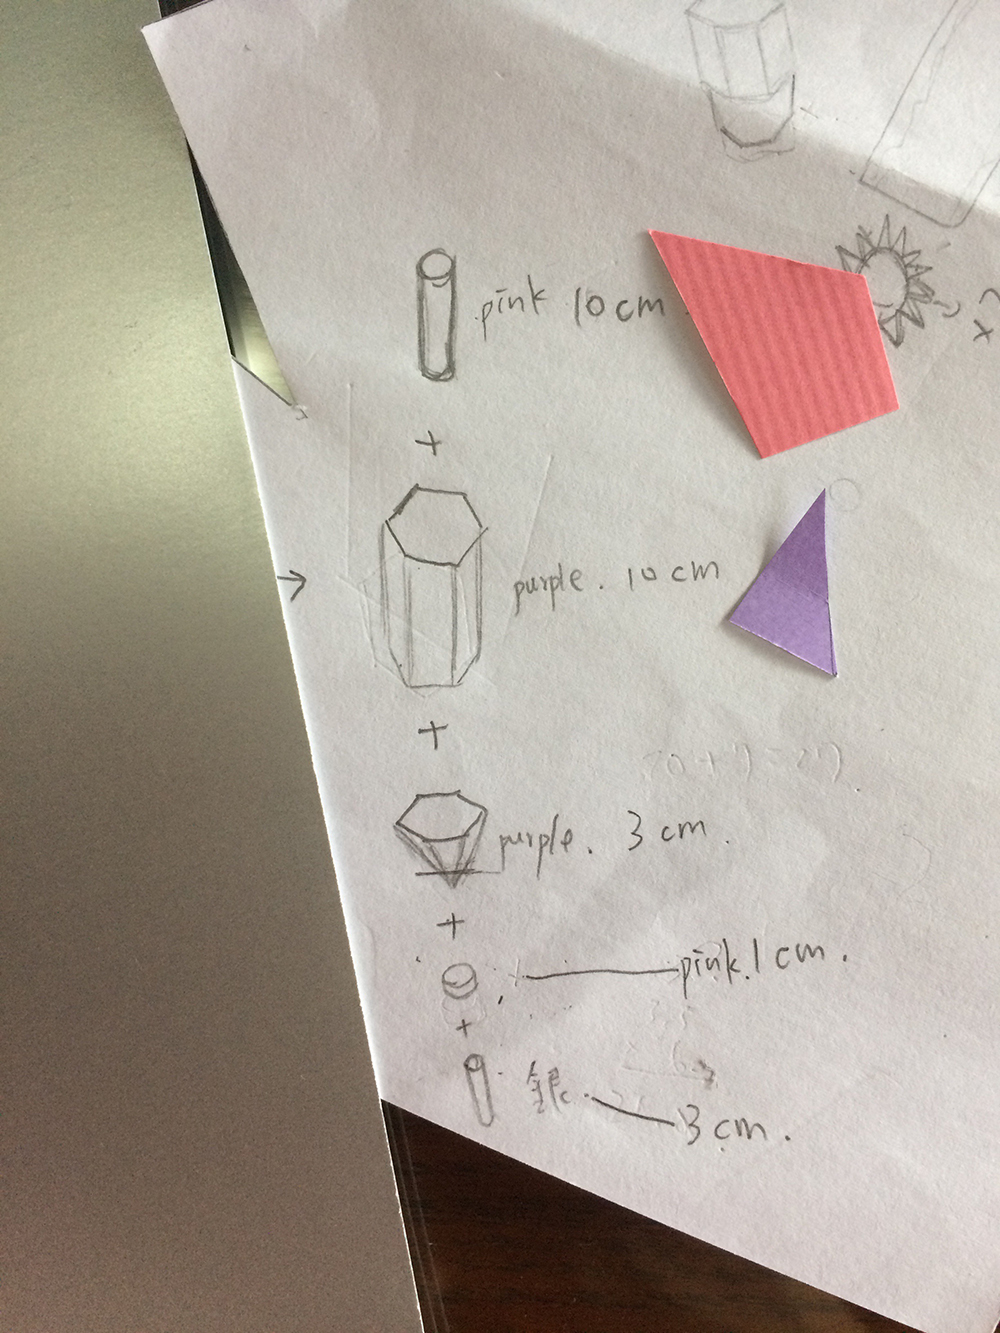 pink 10cm
x2
+
purple. 10 cm
+
purple. 3 cm.
+
pink. 1 cm.
+
銀 3 cm.